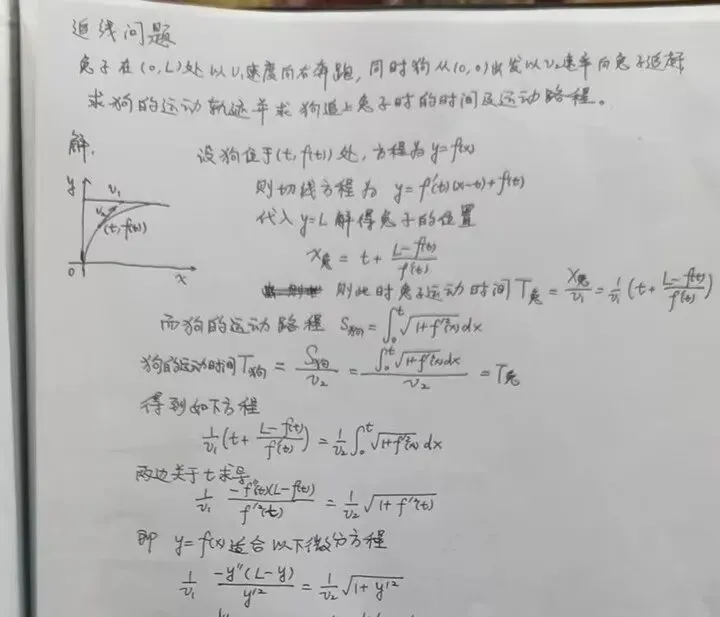 追线问题
兔子在(0,L)处以v₁速度向右奔跑,同时狗从(0,0)出发以v₂速率向兔子追赶
求狗的运动轨迹并求狗追上兔子时的时间及运动路程。
解.
设狗位于(t,f(t))处,方程为y=f(x)
则切线方程为 y=f'(t)(x-t)+f(t)
代入y=L解得兔子的位置
x兔 = t + (L-f(t))/f'(t)
则此时兔子运动时间T兔 = x兔/v₁ = 1/v₁ (t + (L-f(t))/f'(t))
y
v₁
v₂
(t,f(t))
0
x
而狗的运动路程 S狗 = ∫₀ᵗ √(1+f'²(x)) dx
狗的运动时间T狗 = S狗/v₂ = ∫₀ᵗ √(1+f'²(x)) dx / v₂ = T兔
得到如下方程
1/v₁ (t + (L-f(t))/f'(t)) = 1/v₂ ∫₀ᵗ √(1+f'²(x)) dx
两边关于t求导
1/v₁ · -f''(t)(L-f(t))/f'²(t) = 1/v₂ √(1+f'²(t))
即 y=f(x)适合以下微分方程
1/v₁ · -y''(L-y)/y'² = 1/v₂ √(1+y'²)